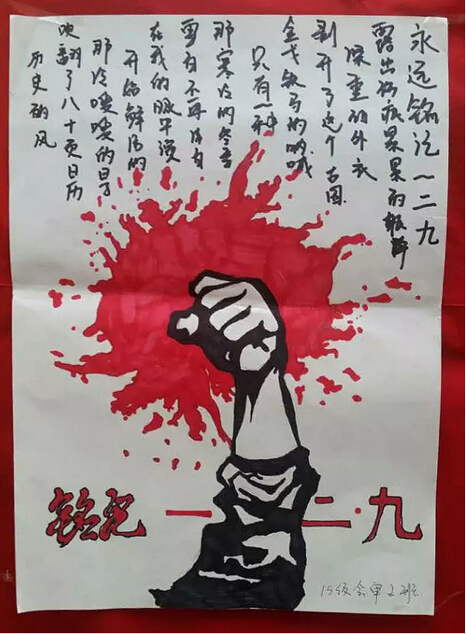 历史的风
吹翻了八十页日历
那段的日子
开始鲜活的
在我的眼
不再没有
那寒冷的冬季
只有一种
金戈铁马的呐喊
剥开了这个古国
深重的外衣
露出伤痕累累的
永远铭记一二九
铭记一二·九
15级会审2班